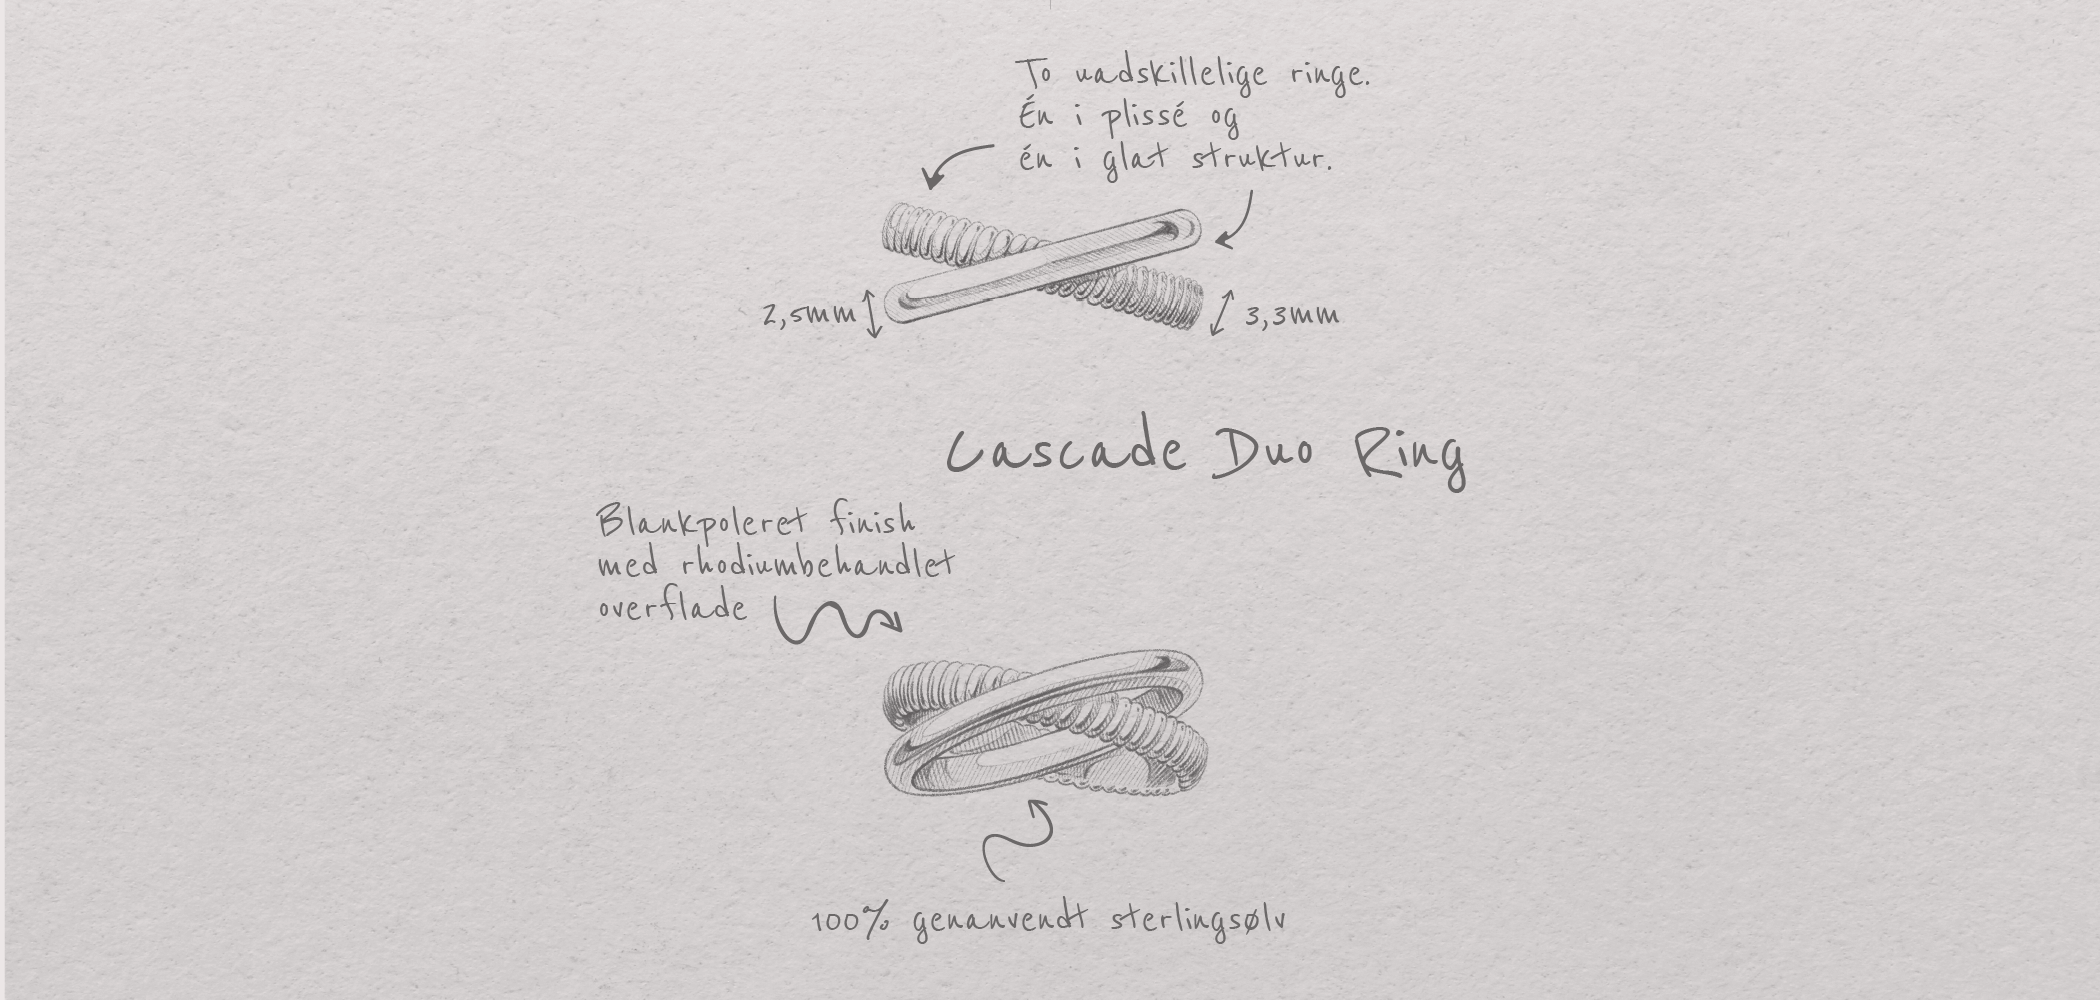 To uadskillelige ringe.
Én i plissé og
én i glat struktur.
2,5mm
3,3mm
Cascade Duo Ring
Blankpoleret finish
med rhodiumbehandlet
overflade
100% genanvendt sterlingsølv